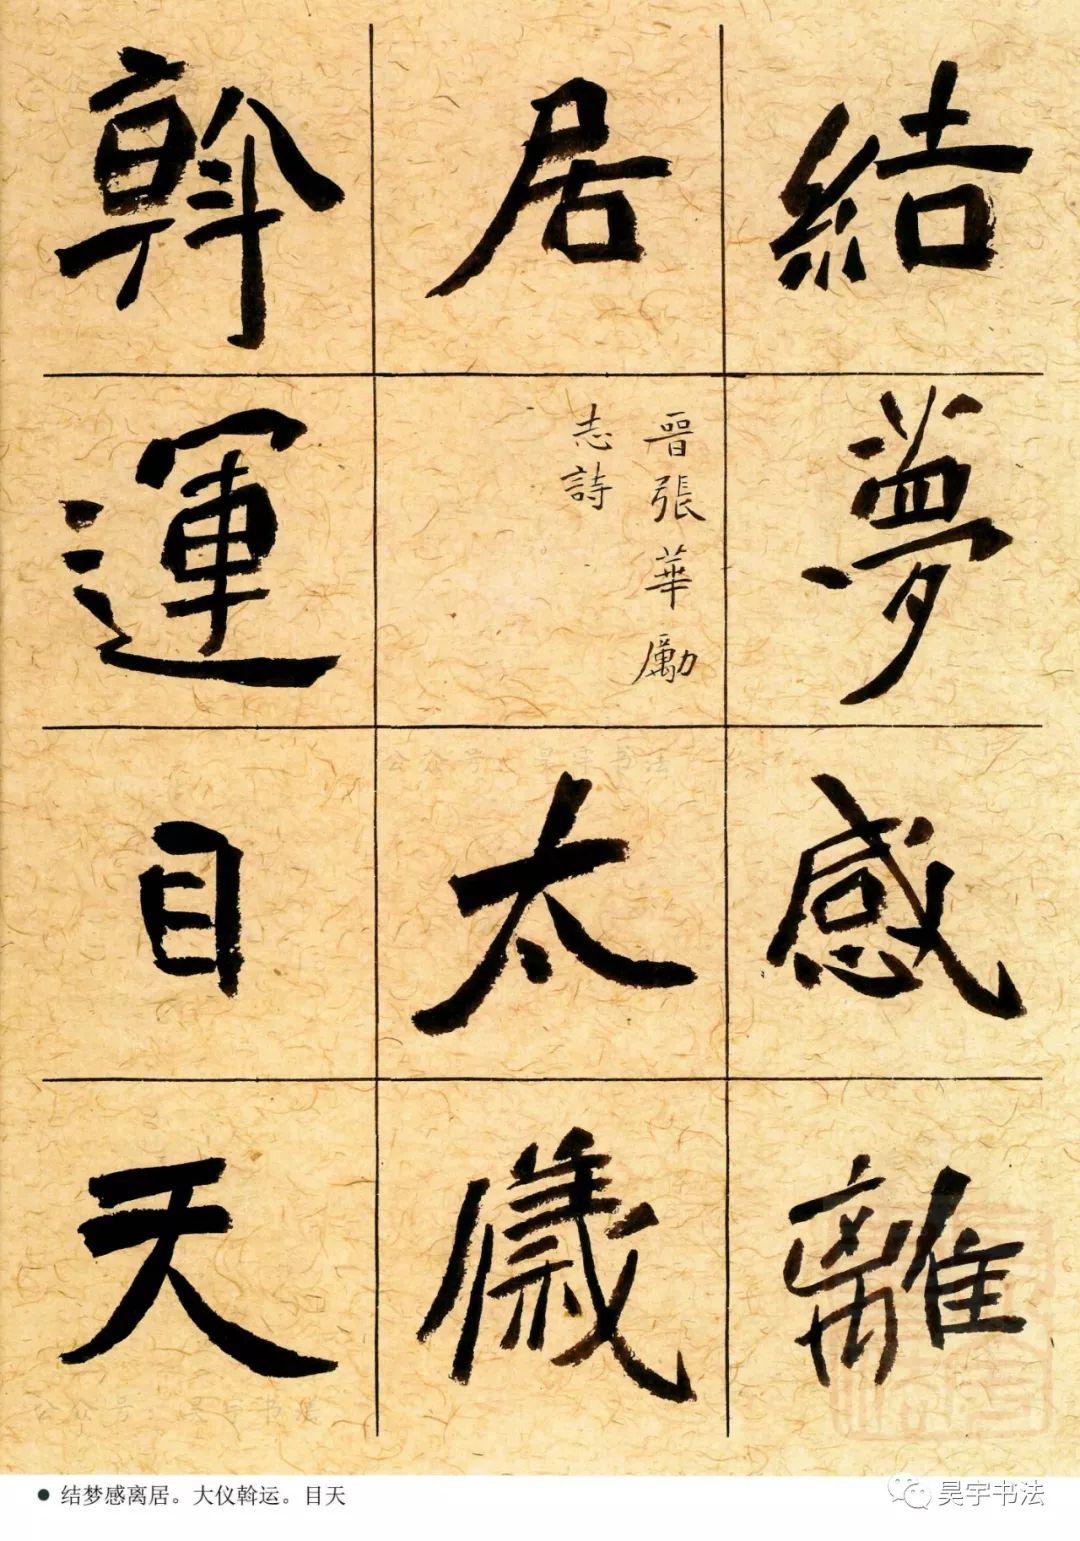 結夢感離
居
晉張華勵
志詩
太儀
斡運目天
公众号：昊宇书法
公众号：昊宇书法
结梦感离居。大仪斡运。目天
昊宇书法